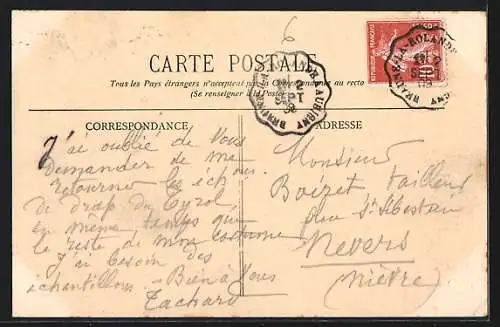 6
CARTE POSTALE
Tous les Pays étrangers n'acceptent pas la Correspondance au recto
(Se renseigner à la Poste)
CORRESPONDANCE
ADRESSE
J'ai oublié de Vous
demander de me
retourner les éch ons.
de drap du Tyrol,
en même temps que
le reste de mon costume
J'ai besoin des
échantillons. Bien à Vous
Tachard
Monsieur
Boizet tailleur
St Sébastien
Nevers
(Nièvre)
REPUBLIQUE FRANÇAISE
10
BEAUNE-LA-ROLANDE A
2
SEPT